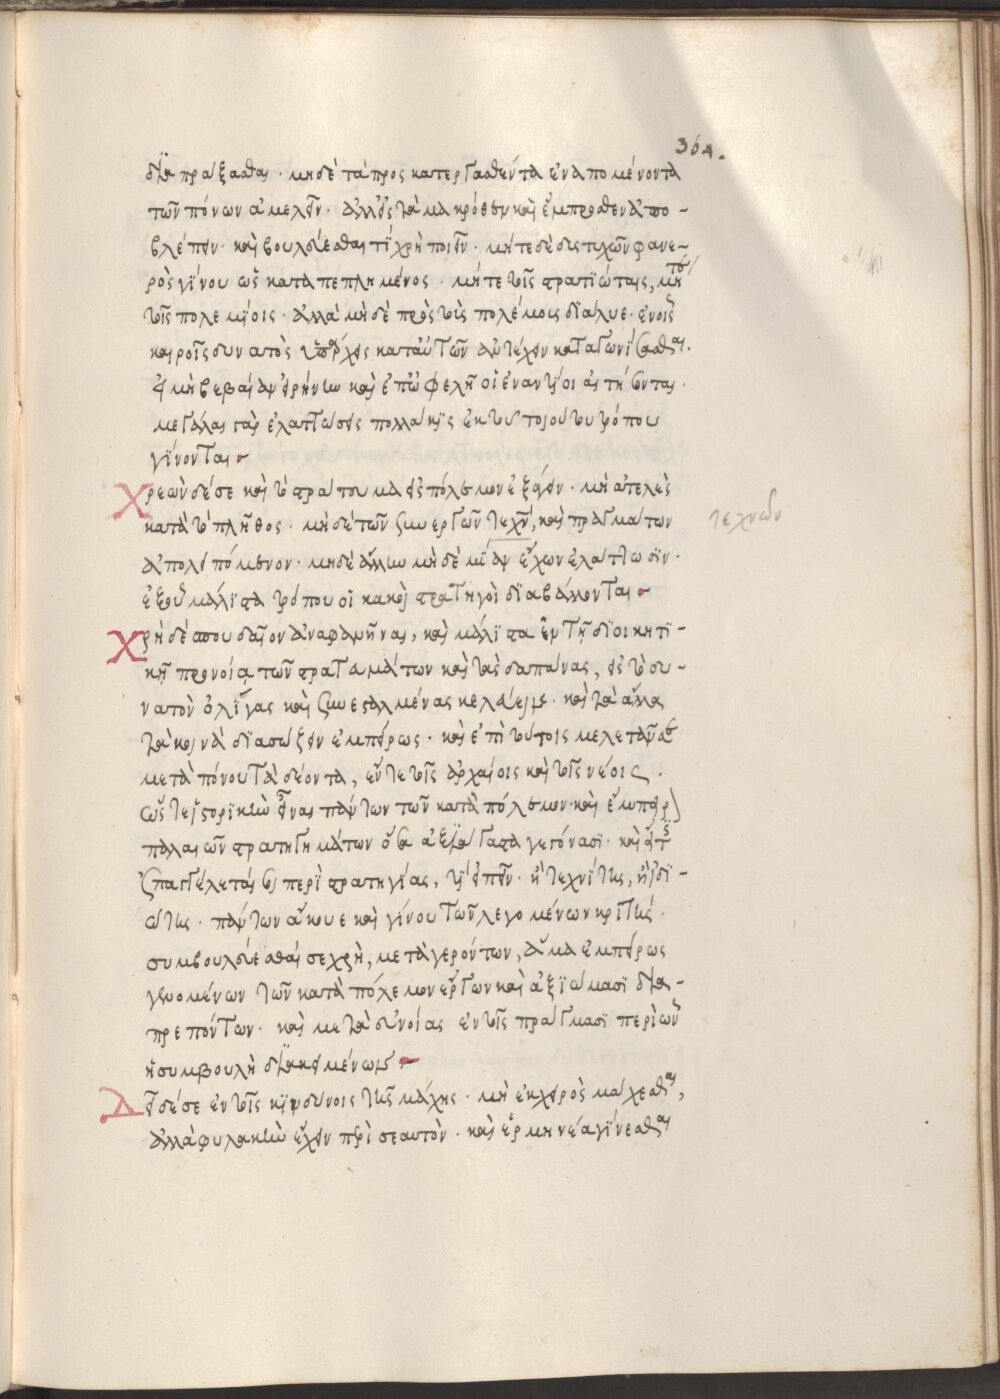 364.
διαπράξασθαι· μηδὲ τὰ πρὸς κατεργασθέντα ἐναπομένοντα
τῶν πόνων ἀμελεῖν· ἀλλ' εἰς τὰ μακρόθεν καὶ ἔμπροσθεν ἀπο-
βλέπειν· καὶ βουλεύεσθαι τί χρὴ ποιεῖν· μήτε δὲ δυστυχῶν φανε-
ρὸς γίνου ὡς καταπεπλημένος· μήτε τοῖς στρατιώταις, μήτε
τοῖς πολεμίοις· ἀλλὰ μηδὲ πρὸς τοὺς πολέμους διάλυε· ἐν οἷς
καιροῖς δυνατὸς ὑπάρχεις κατ' αὐτῶν ἀντέχειν καταγωνίσασθαι·
εἰ μὴ βεβαίαν εἰρήνην καὶ ἐπωφελῆ οἱ ἐναντίοι αἰτήσονται·
μεγάλαι γὰρ ἐλαττώσεις πολλάκις ἐκ τοῦ τοιούτου τρόπου
γίνονται
Χρεὼν δέ σε καὶ τὸ στράτευμα εἰς πόλεμον ἐξάγειν· μὴ ἀτελὲς
κατὰ τὸ πλῆθος· μηδὲ τῶν συνεργῶν τεχνῶν, καὶ πραγμάτων τεχνεων
ἀπολειπόμενον· μηδὲ ἄλλην μηδεμίαν ἔχων ἐλάττωσιν·
ἐξ οὗ μάλιστα τρόπου οἱ κακοὶ στρατηγοὶ διαβάλλονται
Χρὴ δέ σπουδαῖον ἀναφανῆναι, καὶ μάλιστα ἐν τῇ διοικητι-
κῇ προνοίᾳ τῶν στρατευμάτων καὶ τὰς δαπάνας, εἰς τὸ δυ-
νατὸν ὀλίγας καὶ συνεσταλμένας κελεύειν· καὶ τὰ ἄλλα
τὰ κοινὰ διασώζειν ἐμπείρως· καὶ ἐπὶ τούτοις μελετᾶν
μετὰ πόνου τὰ δέοντα, ἔν τε τοῖς ἀρχαίοις καὶ τοῖς νέοις.
ὥστε ἱστορικὴν εἶναι πάντων τῶν κατὰ πόλεμον· καὶ ἔμπειρον
παλαιῶν στρατηγημάτων ὅσα ἀξιάγαστα γεγόνασι· καὶ
πᾶς τελευτᾷ σοι περὶ στρατηγίας, τί εἰπεῖν· ἢ τεχνίτης, ἢ ἰδι-
ώτης· πάντων ἄκουε καὶ γίνου τῶν λεγομένων κριτής·
συμβουλεύεσθαί σε χρὴ, μετὰ γερόντων, ἅμα ἐμπείρως
γευομένων τῶν κατὰ πόλεμον ἔργων καὶ ἀξιώμασι δια-
πρεπόντων· καὶ μετὰ εὐνοίας ἐν τοῖς πράγμασι περὶ ὧν
ἡ συμβουλὴ διακειμένων
Δεῖ δέ σε ἐν τοῖς κινδύνοις τῆς μάχης· μὴ ἐκ χειρὸς μάχεσθαι,
ἀλλὰ φυλακὴν ἔχειν περὶ σεαυτὸν· καὶ ἑρμηνέα γίνεσθαι